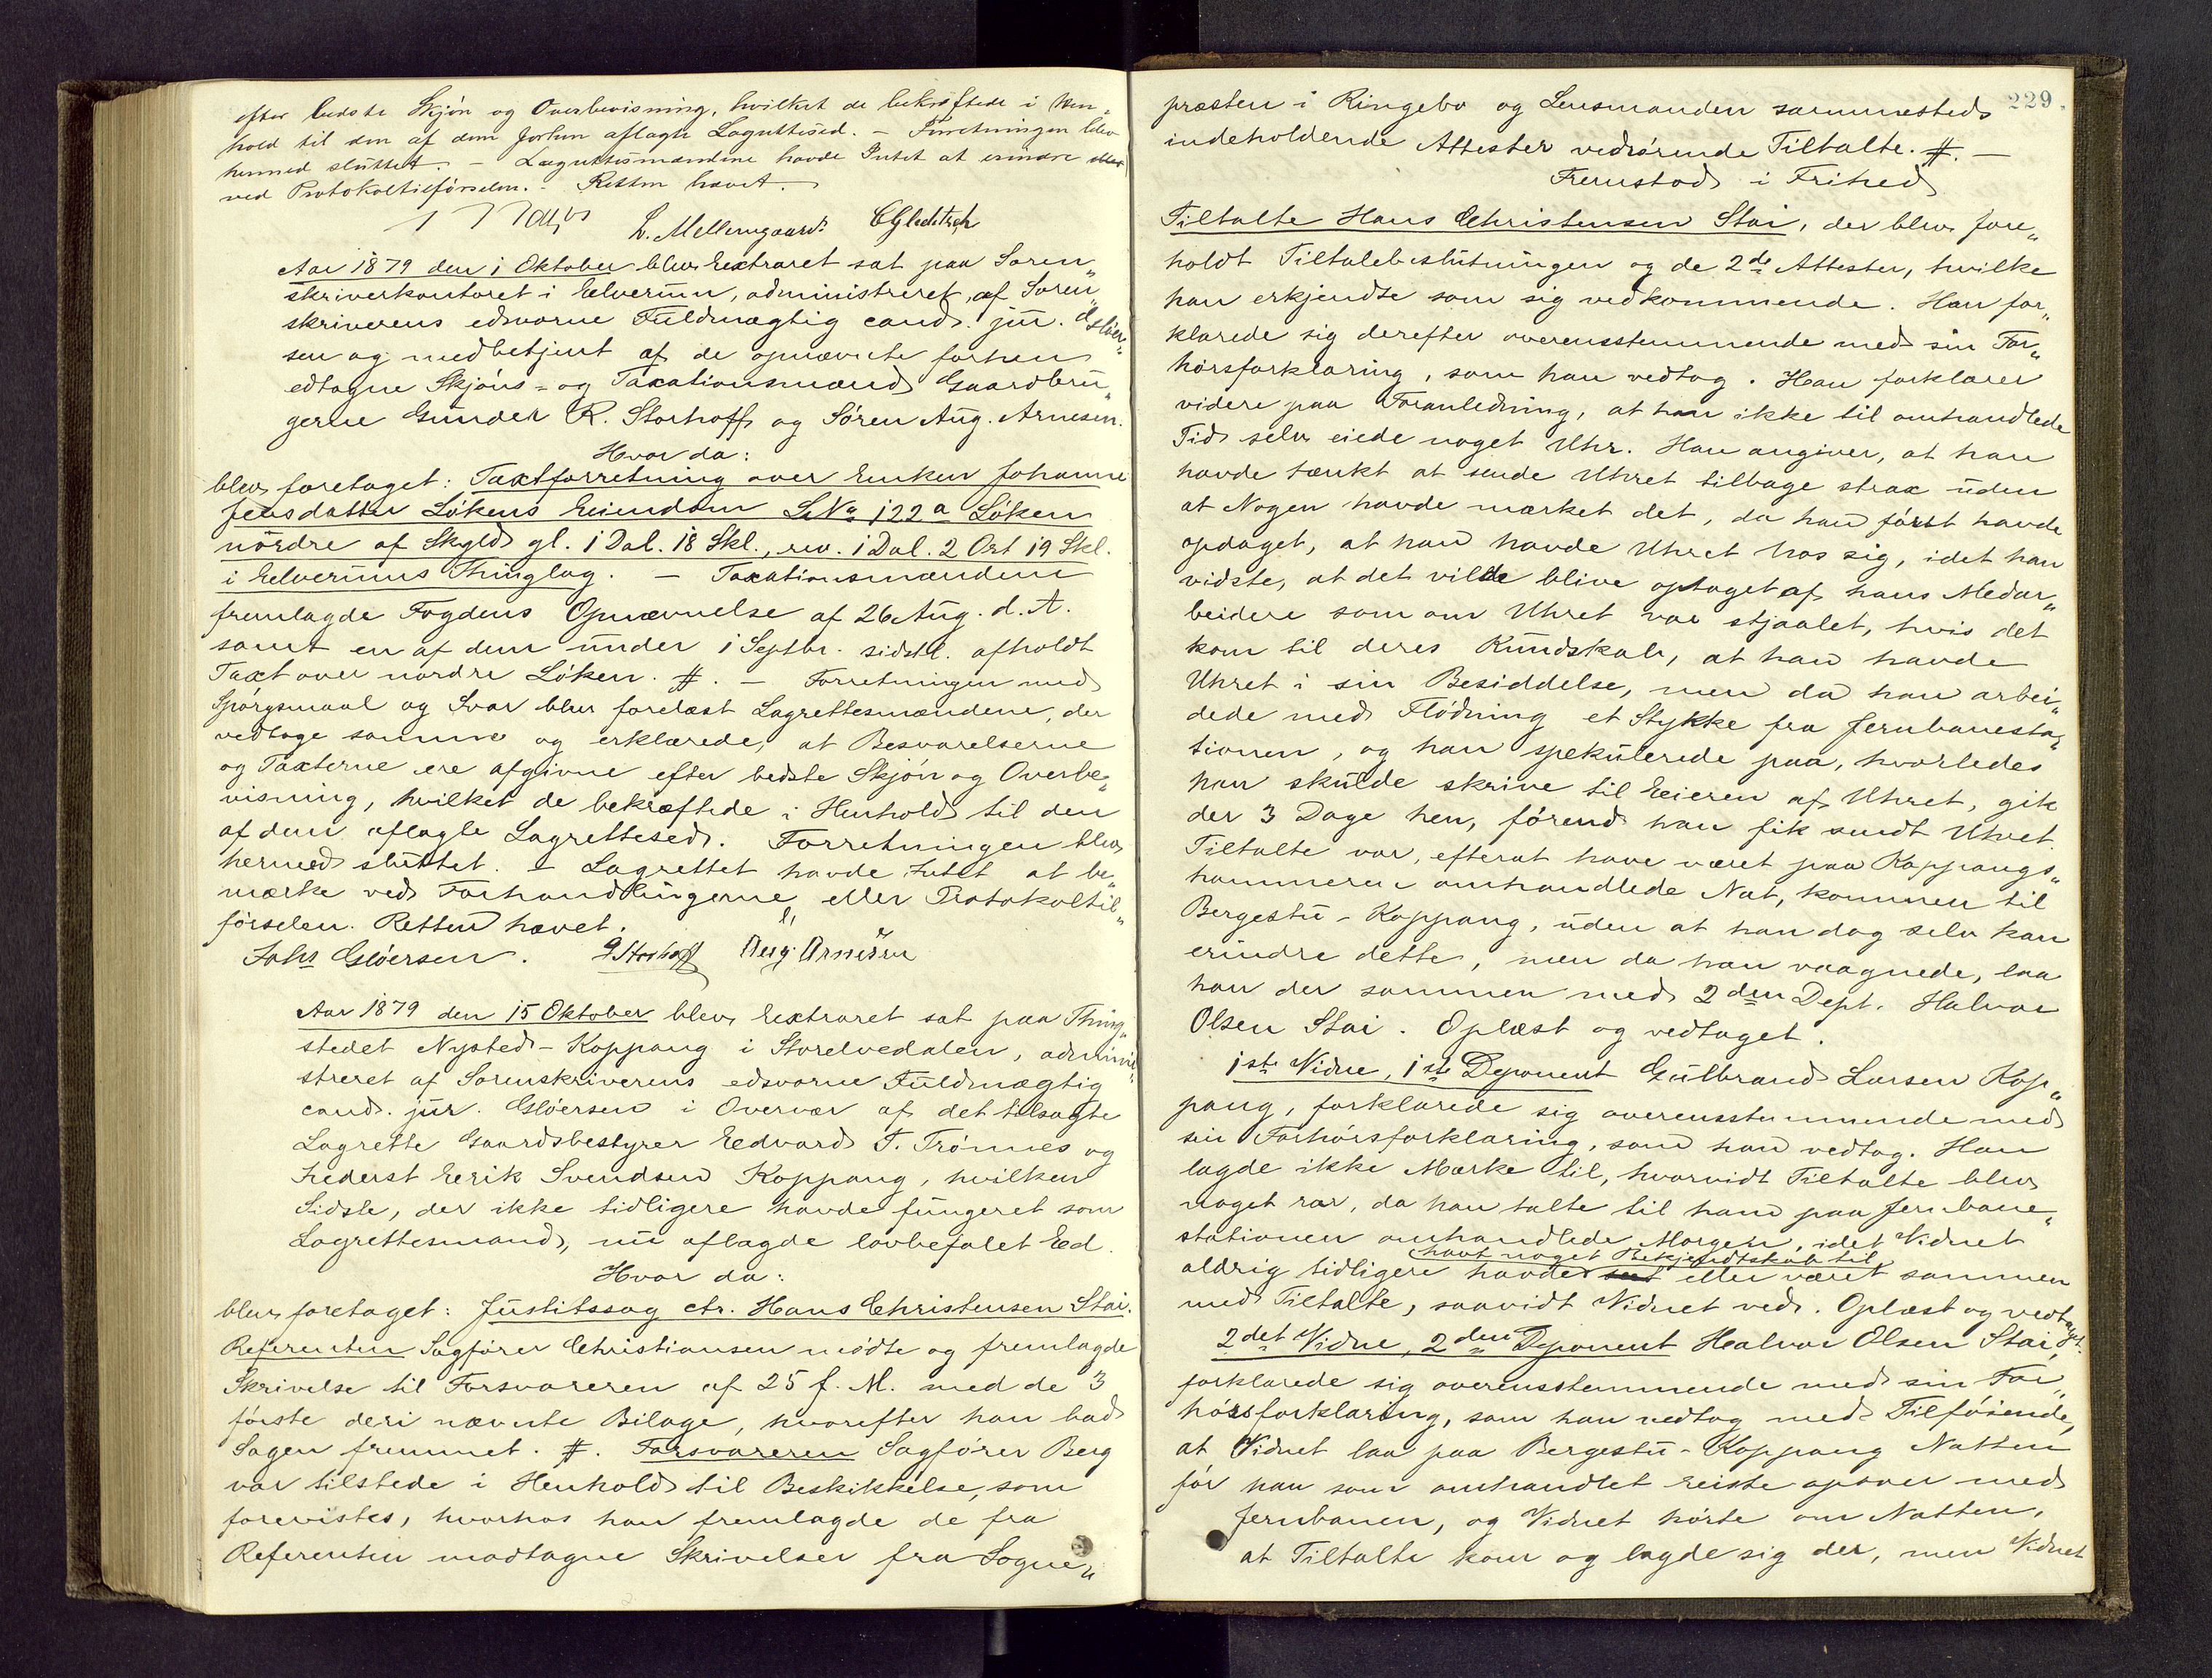 efter bedste Skjøn og Overbevisning, hvilket de bekræftede i Hen„
hold til den af dem forhen aflagte Lagrettesed. – Forretningen blev
hermed sluttet. – Lagrettesmændene havde Intet at erindre
ved Protokoltilførselen. – Retten hævet.
L. Mellemgaard. C Gleditsch
Aar 1879 den 1 Oktober blev Extraret sat paa Soren„
skriverkontoret i Elverum, administreret af Soren„
skriverens edsvorne Fuldmægtig cand. jur. Gløer„
sen og medbetjent af de opnævnte forhen
edtagne Skjøns- og Taxationsmænd Gaardbru„
gerne Gunder R. Storhoff og Søren Aug. Arnesen.
Hvor da:
blev foretaget: Taxtforretning over Enken Johanne
Jensdatter Løkens Eiendom LNo 122a Løken
nordre af Skyld gl. 1 Dal. 18 Skl., rev. 1 Dal. 2 Ort 19 Skl.
i Elverums Thinglag. – Taxationsmændene
fremlagde Fogdens Opnævnelse af 26 Aug. d. A.
samt en af dem under 1 Septbr. sidstl. afholdt
Taxt over nordre Løken. #. – Forretningen med
Spørgsmaal og Svar blev forelæst Lagrettesmændene, der
vedtoge samme og erklærede, at Besvarelserne
og Taxterne ere afgivne efter bedste Skjøn og Overbe„
visning, hvilket de bekræftede i Henhold til den
af dem aflagte Lagrettesed. Forretningen blev
hermed sluttet. – Lagrettet havde Intet at be„
mærke ved Forhandlingerne eller Protokoltil„
førselen. Retten hævet.
Johs Gløersen. G Storhoff Aug. Arnesen
Aar 1879 den 15 Oktober blev Extraret sat paa Thing„
stedet Nysted-Koppang i Storelvedalen, admini„
streret af Sorenskriverens edsvorne Fuldmægtig
cand. jur. Gløersen i Overvær af det tilsagte
Lagrette Gaardsbestyrer Edvard T. Trønnes og
Inderst Erik Svendsen Koppang, hvilken
Sidste, der ikke tidligere havde fungeret som
Lagrettesmand, nu aflagde lovbefalet Ed.
Hvor da:
blev foretaget: Justitssag ctr. Hans Christensen Stai.
Referenten Sagfører Christiansen mødte og fremlagde
Skrivelse til Forsvareren af 25 f. M. med de 3
første deri nævnte Bilage, hvorefter han bad
Sagen fremmet. #. Forsvareren Sagfører Berg
var tilstede i Henhold til Beskikkelse, som
forevistes, hvorhos han fremlagde de fra
Referenten modtagne Skrivelser fra Sogne„
229.
præsten i Ringebo og Lensmanden sammesteds
indeholdende Attester vedrørende Tiltalte. #. –
Fremstod i Frihed
Tiltalte Hans Christensen Stai, der blev fore„
holdt Tiltalebeslutningen og de 2de Attester, hvilke
han erkjendte som sig vedkommende. Han for„
klarede sig derefter overensstemmende med sin For„
hørsforklaring, som han vedtog. Han forklarer
videre paa Foranledning, at han ikke til omhandlede
Tid selv eiede noget Uhr. Han angiver, at han
havde tænkt at sende Uhret tilbage strax uden
at Nogen havde mærket det, da han først havde
opdaget, at han havde Uhret hos sig, idet han
vidste, at det vilde blive optaget af hans Medar„
beidere som om Uhret var stjaalet, hvis det
kom til deres Kundskab, at han havde
Uhret i sin Besiddelse, men da han arbei„
dede med Flødning et Stykke fra Jernbanesta„
tionen, og han spekulerede paa, hvorledes
han skulde skrive til Eieren af Uhret, gik
der 3 Dage hen, førend han fik sendt Uhret.
Tiltalte var, efterat have været paa Koppangs„
hammeren omhandlede Nat, kommen til
Bergestu-Koppang, uden at han dog selv kan
erindre dette, men da han vaagnede, laa
han der sammen med 2den Dept. Halvor
Olsen Stai. Oplæst og vedtaget.
1ste Vidne, 1ste Deponent Gulbrand Larsen Kop„
pang, forklarede sig overensstemmende med
sin Forhørsforklaring, som han vedtog. Han
lagde ikke Mærke til, hvorvidt Tiltalte blev
noget rar, da han talte til ham paa Jernbane„
stationen omhandlede Morgen, idet Vidnet
havt noget Bekjendtskab til
aldrig tidligere havde seet eller været sammen
med Tiltalte, saavidt Vidnet ved. Oplæst og vedtaget.
2det Vidne, 2den Deponent Halvor Olsen Stai,
forklarede sig overensstemmende med sin For„
hørsforklaring, som han vedtog med Tilføiende,
at Vidnet laa paa Bergestu-Koppang Natten
før han som omhandlet reiste opover med
Jernbanen, og Vidnet hørte om Natten,
at Tiltalte kom og lagde sig der, men Vidnet